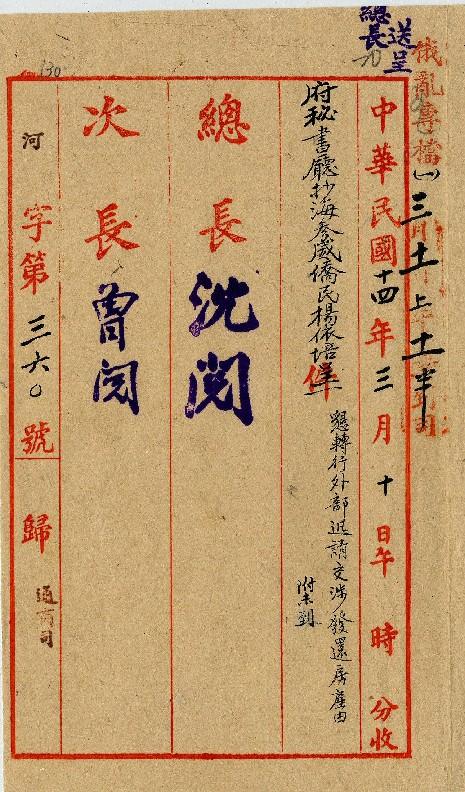 總長
送呈
俄亂專檔(一)
三 土 上 土 半
中華民國十四年三月十日午時分收
府秘書廳抄海參崴僑民楊依培呈
件
懇轉行外部迅請交涉發還房產由
附
總長
沈閱
次長
曾閱
河字第三六〇號歸通商司
130